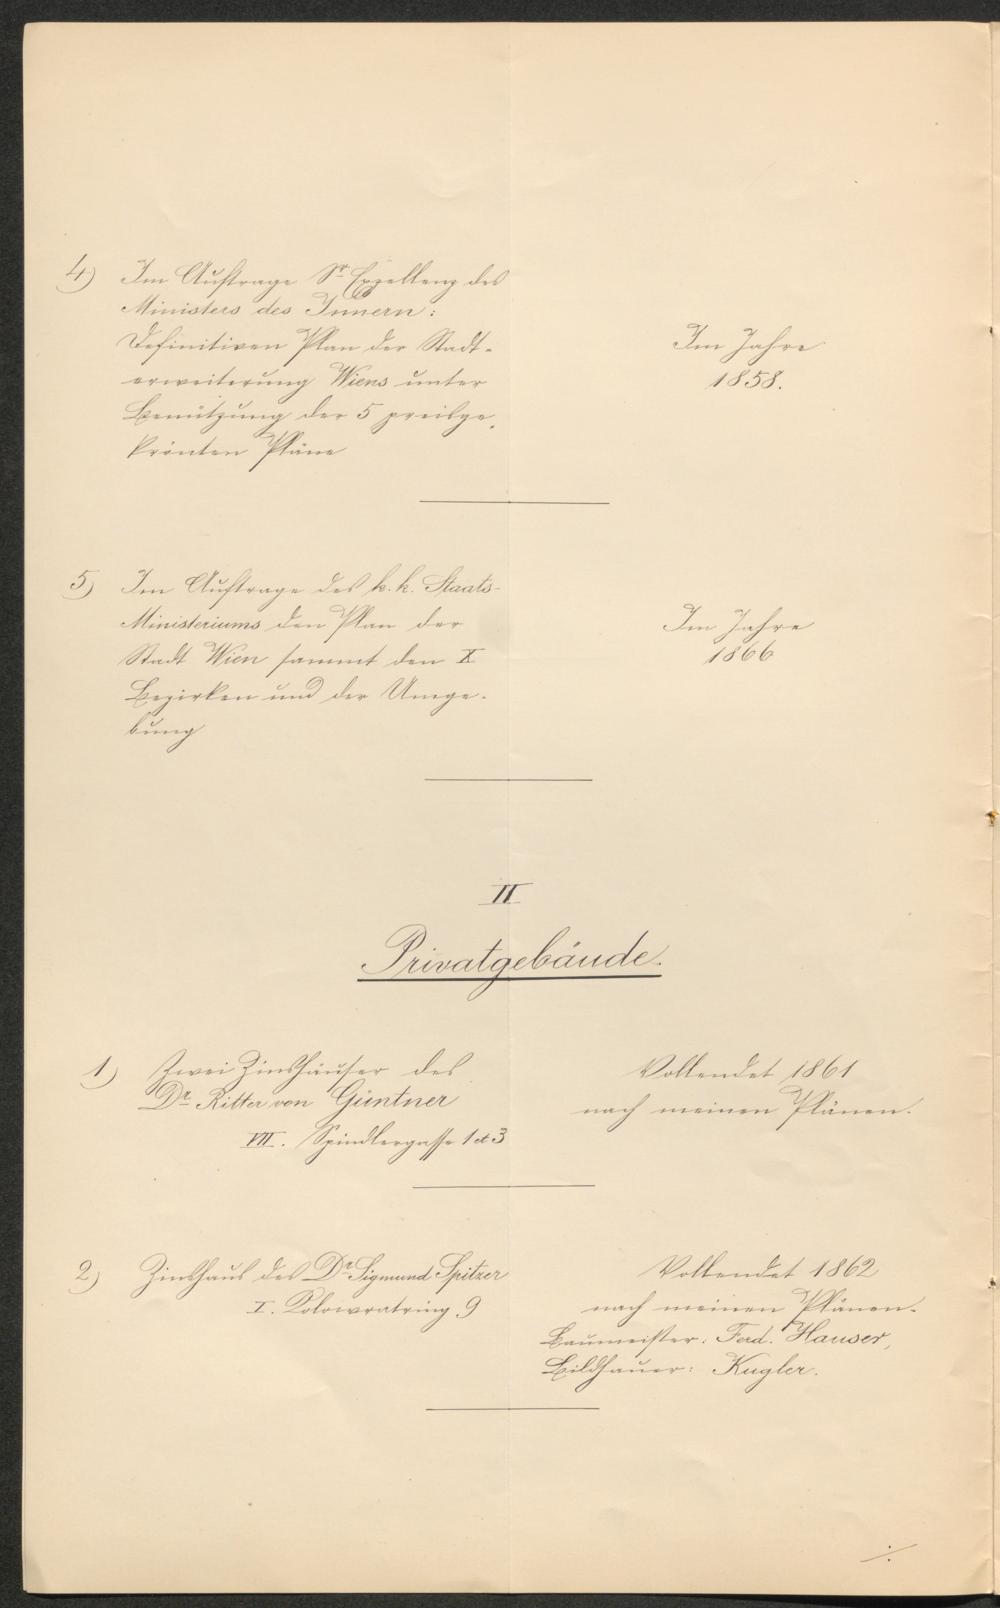 4) Im Auftrage Sr Exzellenz des
Ministers des Innern:
Definitiven Plan der Stadt-
erweiterung Wiens unter
Benützung der 5 preisge-
krönten Pläne
Im Jahre
1858.
5) Im Auftrage des k. k. Staats-
Ministeriums den Plan der
Stadt Wien sammt den X
Bezirken und der Umge-
bung
Im Jahre
1866
II
Privatgebäude.
1) Zwei Zinshäuser des
Dr Ritter von Güntner
VII. Spindlergasse 1 et 3
Vollendet 1861
nach meinen Plänen.
2) Zinshaus des Dr Sigmund Spitzer
I. Kolowratring 9
Vollendet 1862
nach meinen Plänen.
Baumeister: Ferd. Hauser,
Bildhauer: Kugler.
./.